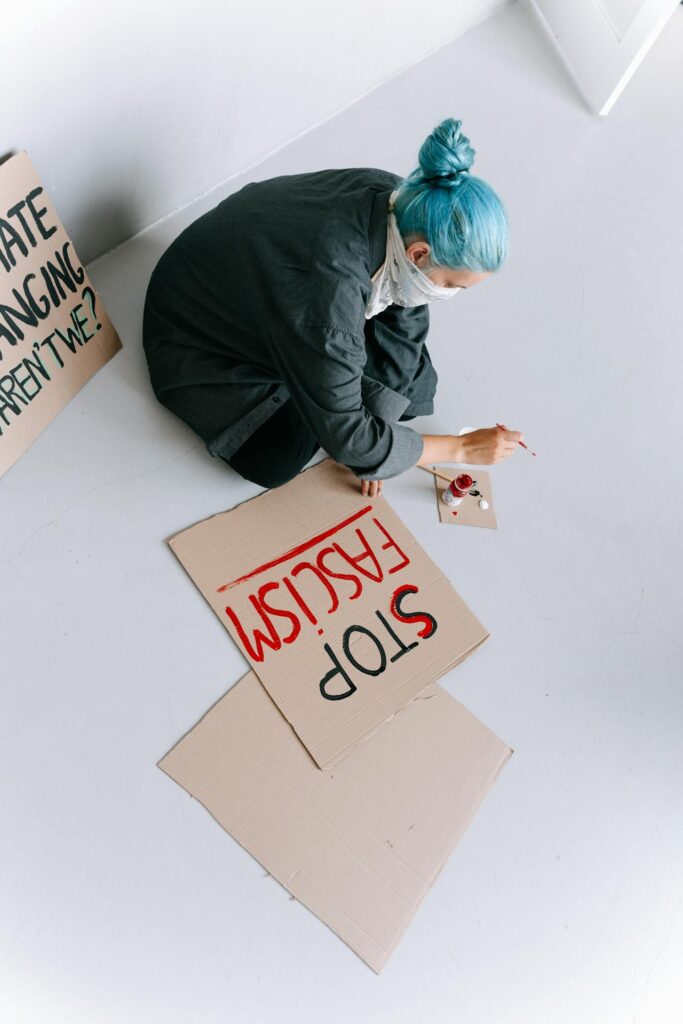 ATE
ANGING
AREN'T WE?
STOP
FASCISM